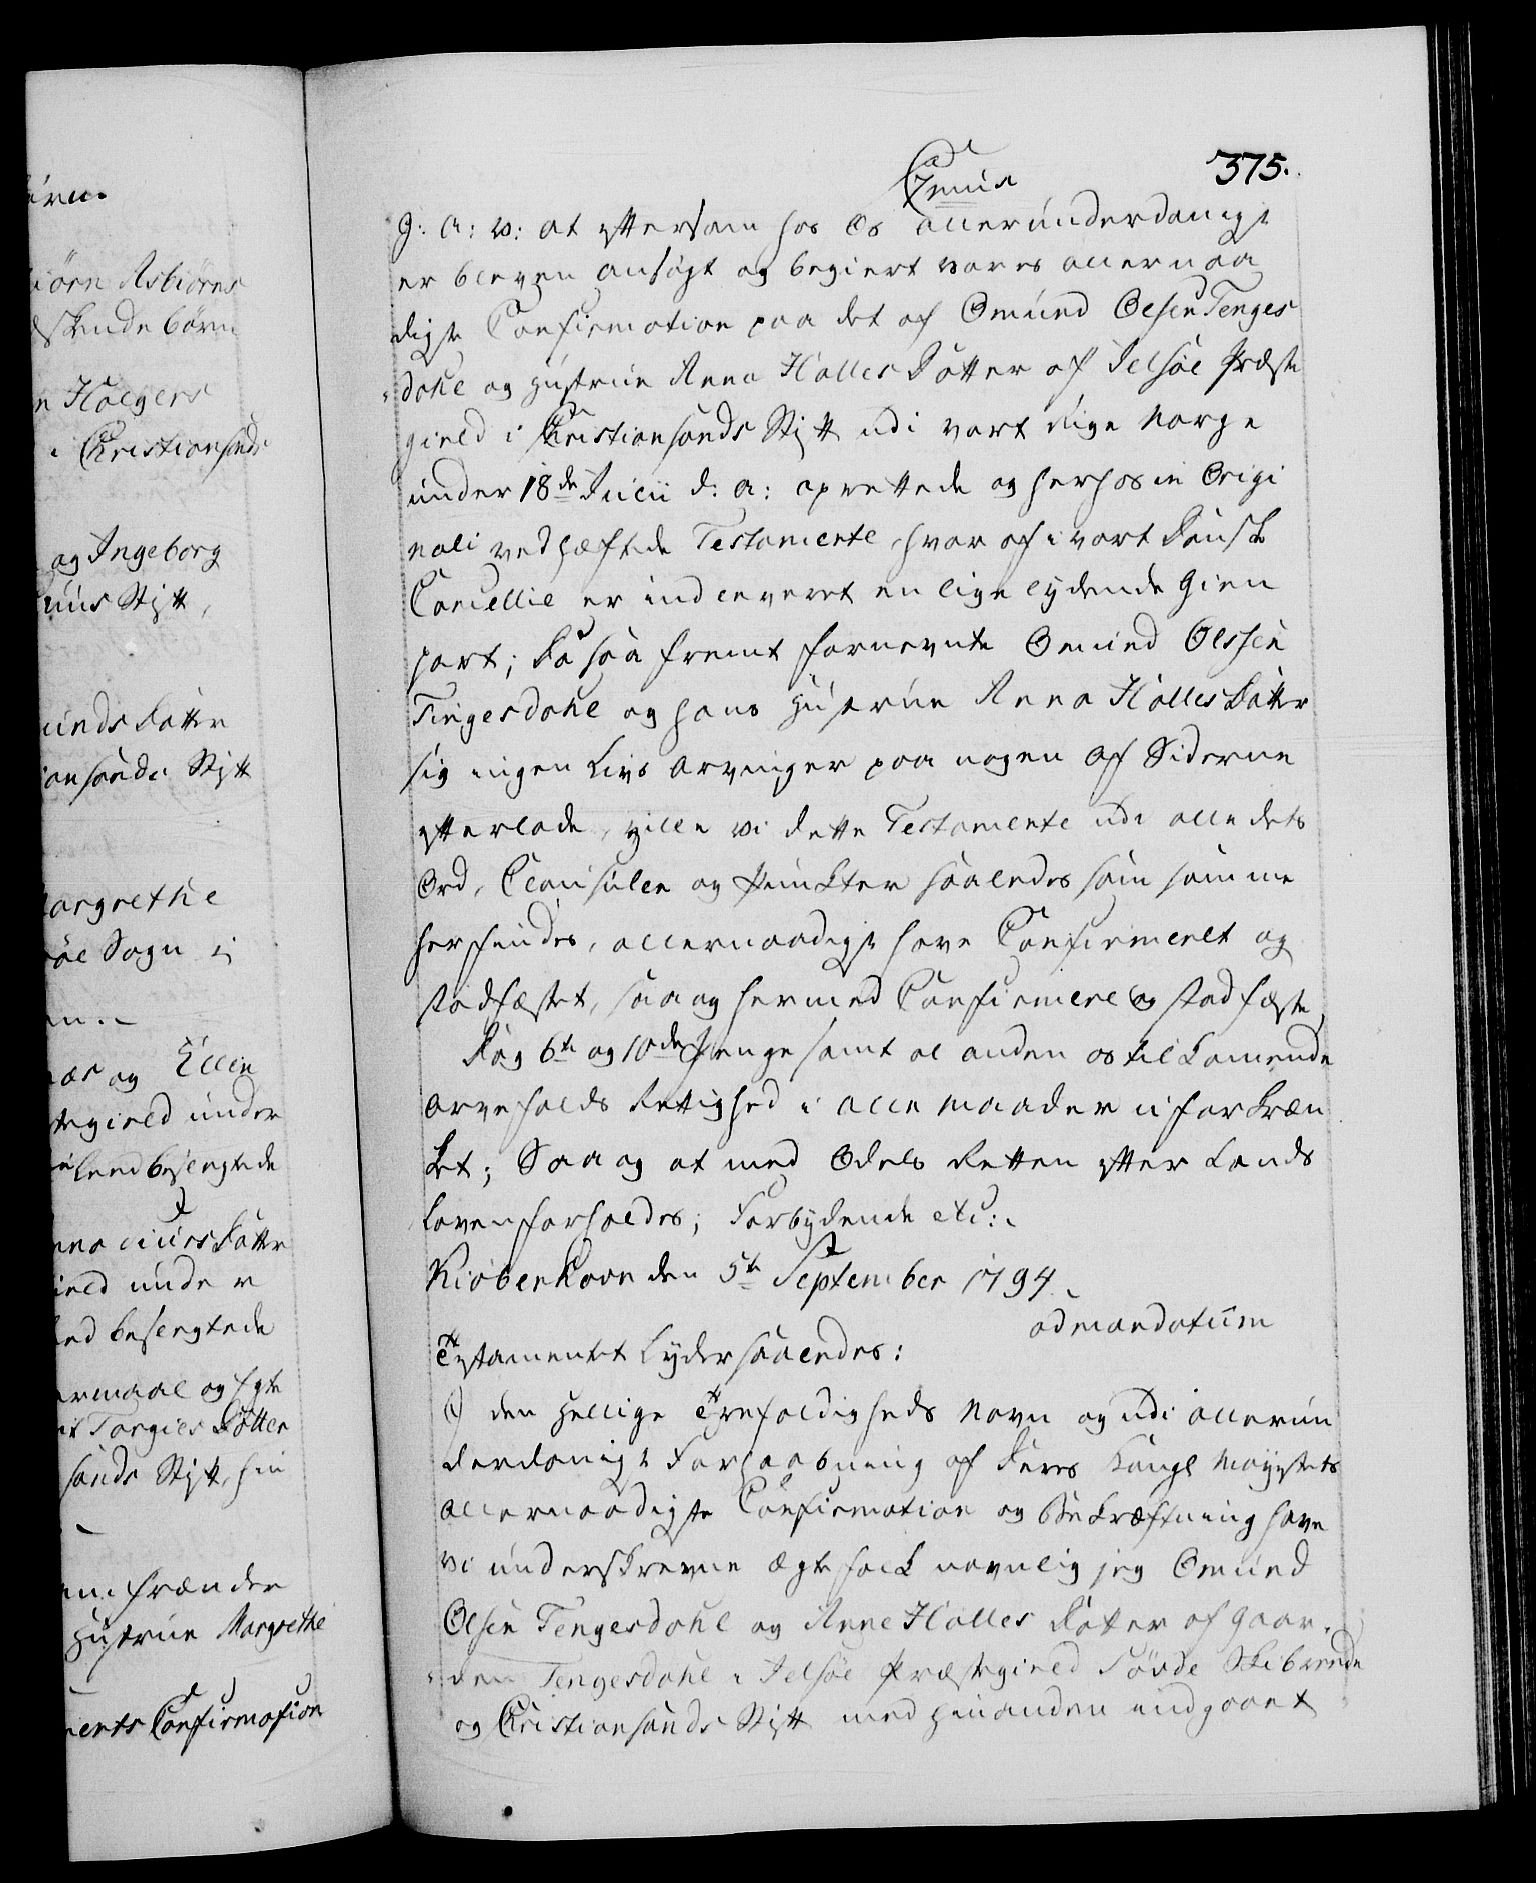 375.
G: A: V: at eftersom hos Os allerunderdanigst
er bleven ansøgt og begiert vores allernaa
digste Confirmation paa det af Omund Olsen Tenges
dahl og Hustrue Anna Halles Datter af Jelsøe Præste
gield i Christiansands Stift udi vort Rige Norge
under 18de Julii d: a: oprettede og herhos in Origi
nali vedhæftede Testamente, hvor af i vort Danske
Cancellie er indleveret en lige lydende Gien
part; Da saa fremt fornevnte Omund Olssen
Tengesdahl og hans Hustrue Anna Halles Datter
sig ingen Livs Arvinger paa nogen af Siderne
efterlade, ville vi dette Testamente udi alle dets
Ord, Clausuler og Puncter saaledes som samme
herfindes, allernaadigst have Confirmeret og
stadfæstet, saa og hermed Confirmere og stadfæste,
Dog 6te og 10de Penge samt al anden os tilkomende
Arvefalds Rettighed i alle Maader uforkræn
ket; Saa og at med Odels Retten efter Lands
Loven forholdes; Forbydende etc:
Kiøbenhavn den 5te September 1794.
ad mandatum
Testamentet Lyder saaledes:
I den Hellige Trefoldigheds Navn og udi allerun
derdanigst Forhaabning af Deres Kongl Mayestets
allernaadigste Confirmation og Bekræftning have
vi underskrevne Ægtefolk navnlig jeg Omund
Olsen Tengesdahl og Anne Halles Datter af Gaar
den Tengesdahl i Jelsøe Præstegield Søvde Skibrede
og Christiansands Stift med hinanden indgaaet
iørn Asbiørns
skende børn
n Holgers
i Christiansands
og Ingeborg
uus Stift,
unds Datter
iansands Stift
argrethe
øe Sogn i
og Ellen
tegield under
Datter
ield under
ed besengtede
ermaal og Egte
Torgies Datter
sands Stift, hin
Frænder
Hustrue Margrethe
ments Confirmation